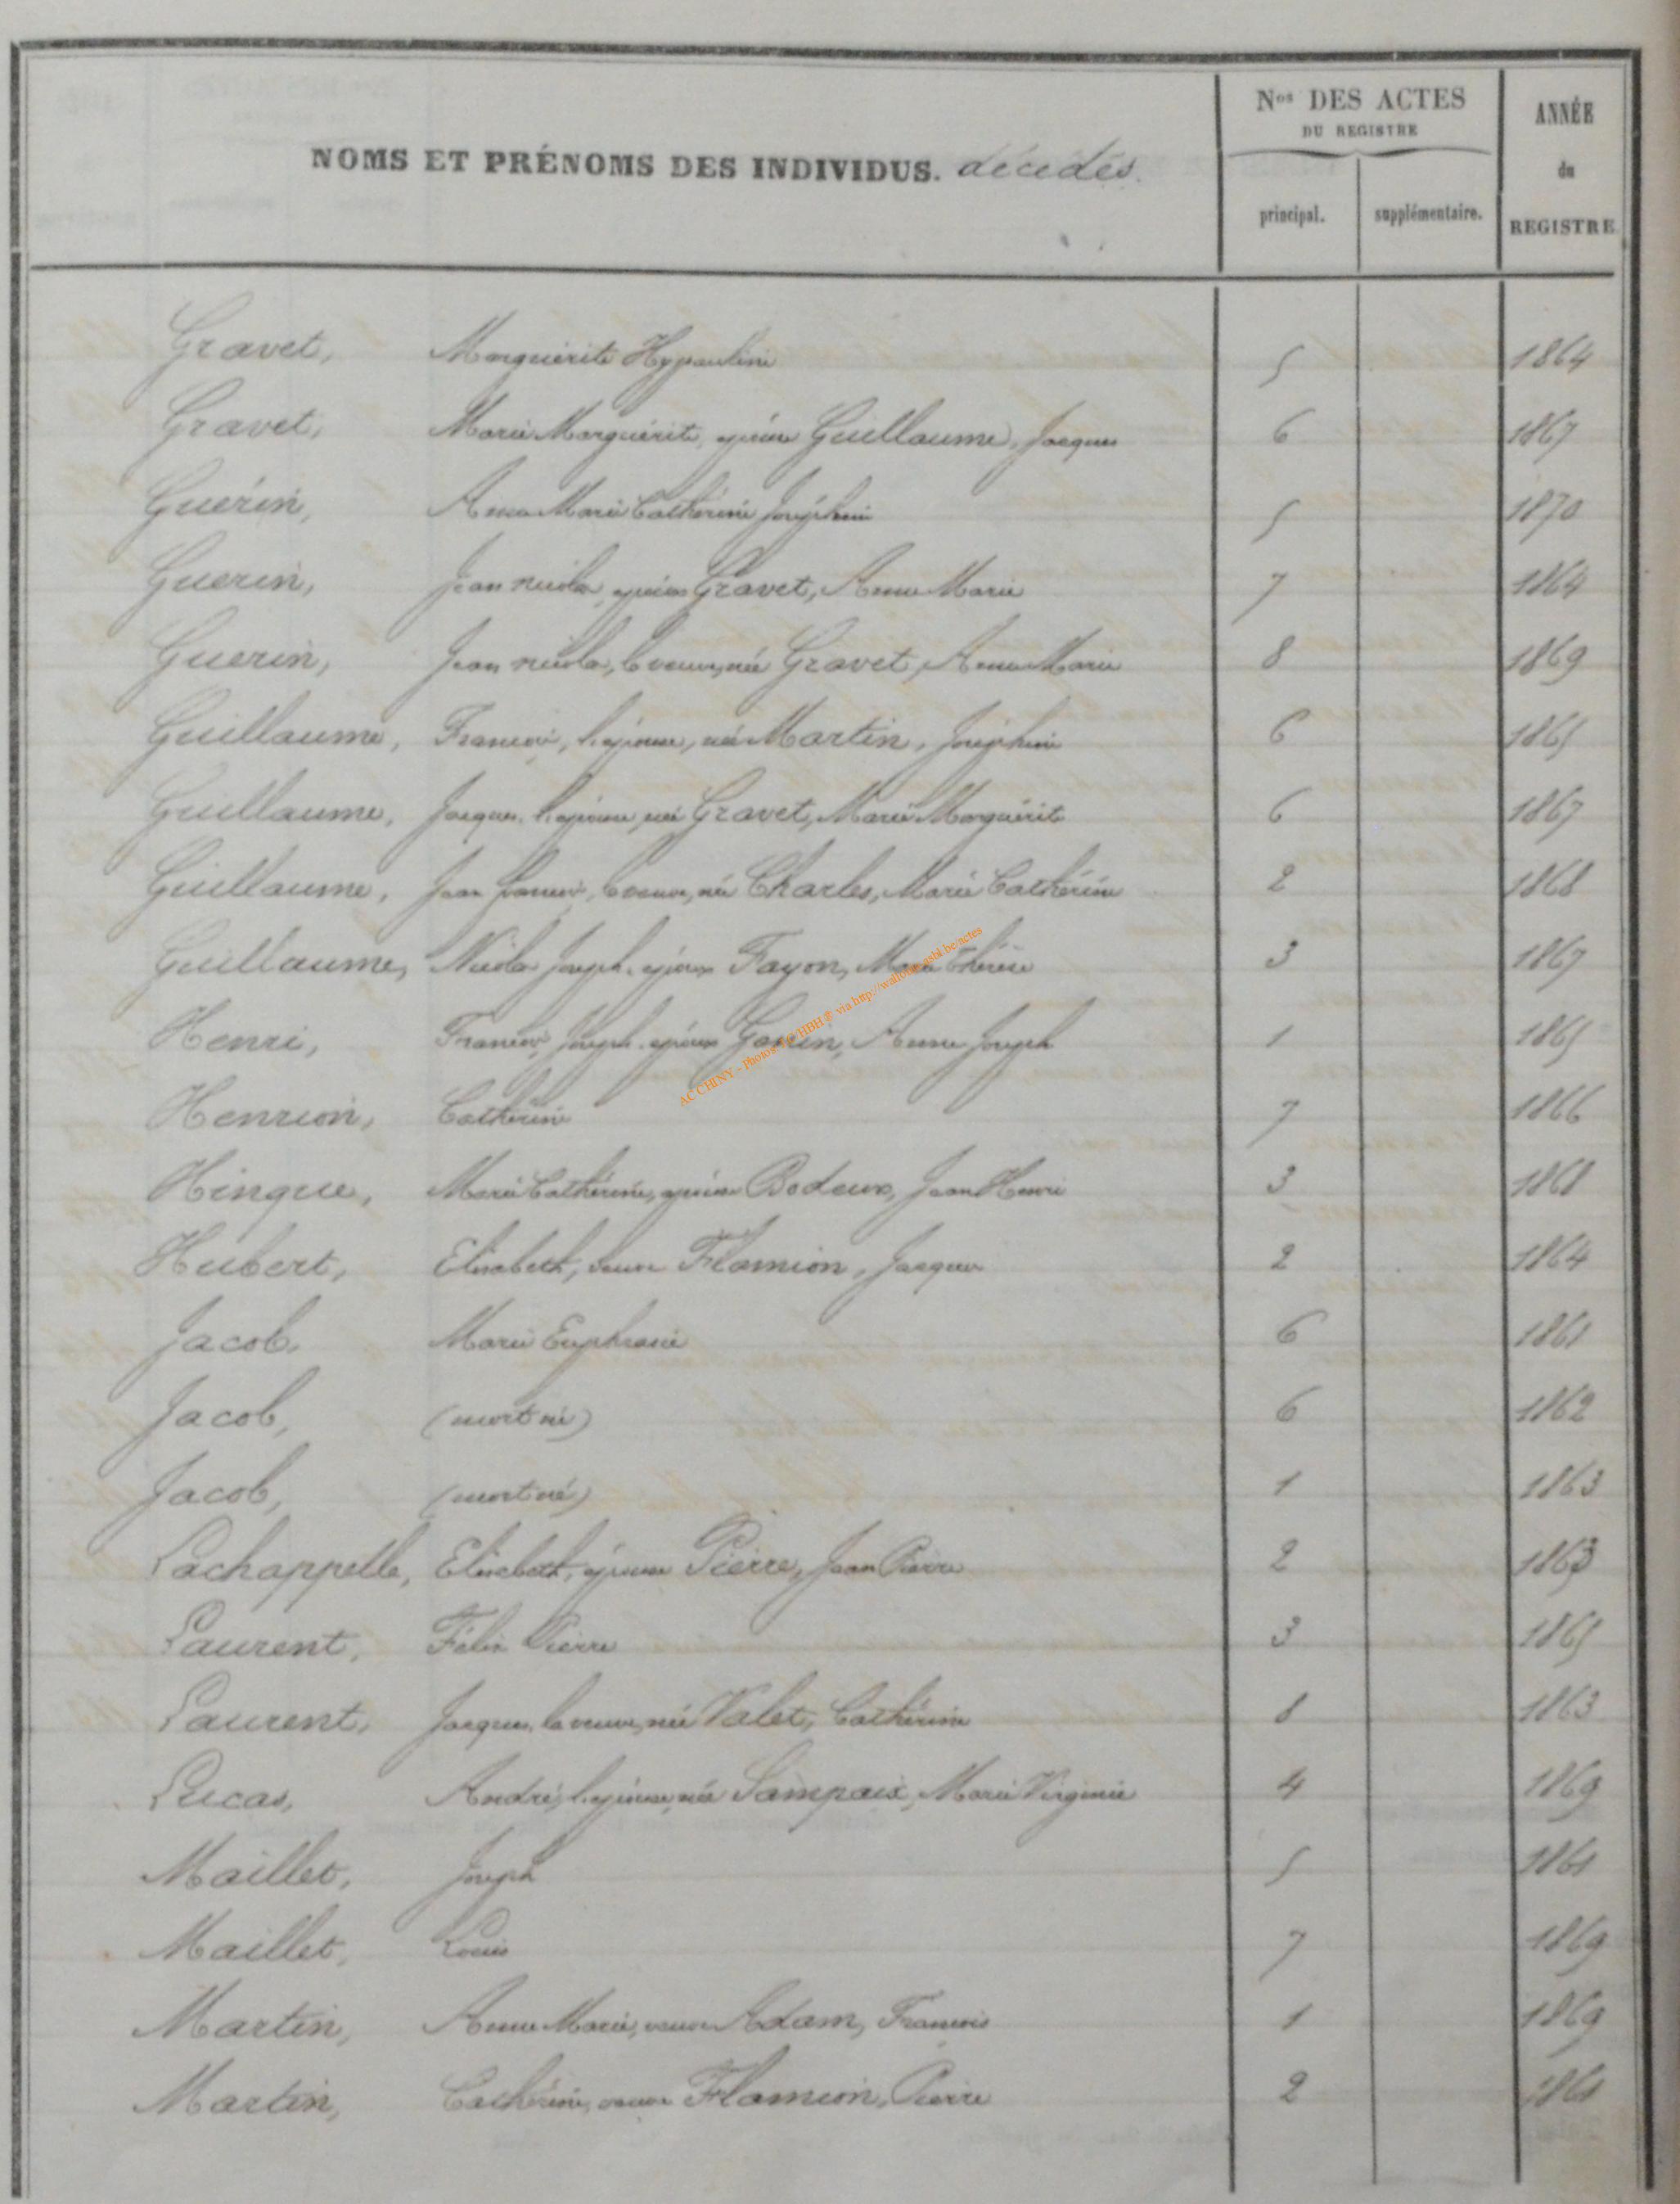 NOMS ET PRÉNOMS DES INDIVIDUS. décédés.
Nos DES ACTES
DU REGISTRE
principal. supplémentaire.
ANNÉE
du
REGISTRE
Gravet, Marguérite Hypauline 5 1864
Gravet, Marie Marguérite, épouse Guillaume, Jacques 6 1867
Guérin, Anne Marie Cathérine Joséphine 5 1870
Guerin, Jean nicolas, époux Gravet, Anne Marie 7 1864
Guerin, Jean nicolas, la veuve, née Gravet, Anne Marie 8 1869
Guillaume, François, l'épouse, née Martin, Joséphine 6 1865
Guillaume, Jacques, l'épouse, née Gravet, Marie Marguérite 6 1867
Guillaume, Jean françois, la veuve, née Charles, Marie Cathérine 2 1868
Guillaume, Nicolas Joseph, époux Fayon, Marie Thérèse 3 1867
Henri, François Joseph, époux Gonin, Anne Joseph 1 1865
Henrion, Cathérine 7 1866
Hinque, Marie Cathérine, épouse Bodeux, Jean Henri 3 1868
Hubert, Elisabeth, veuve Flamion, Jacques 2 1864
Jacob, Marie Euphrasie 6 1861
Jacob, (mort né) 6 1862
Jacob, (mort né) 1 1863
Lachappelle, Elisabeth, épouse Pierre, Jean Pierre 2 1863
Laurent, Félix Pierre 3 1865
Laurent, Jacques, la veuve, née Valet, Cathérine 8 1863
Lucas, André, l'épouse, née Sampaix, Marie Virginie 4 1869
Maillet, Joseph 5 1861
Maillet, Louis 7 1869
Martin, Anne Marie, veuve Adam, François 1 1869
Martin, Cathérine, veuve Flamion, Pierre 2 1861
AC CHINY - Photos © HBH ® via http://wallonia.asbl.be/actes